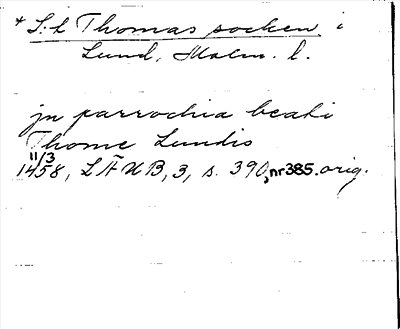 * S:t Thomas socken i
Lund, Malm. l.
jn parrochia beati
Thome Lundis
11/3
1458, LÄUB, 3, s. 390, nr 385. orig.